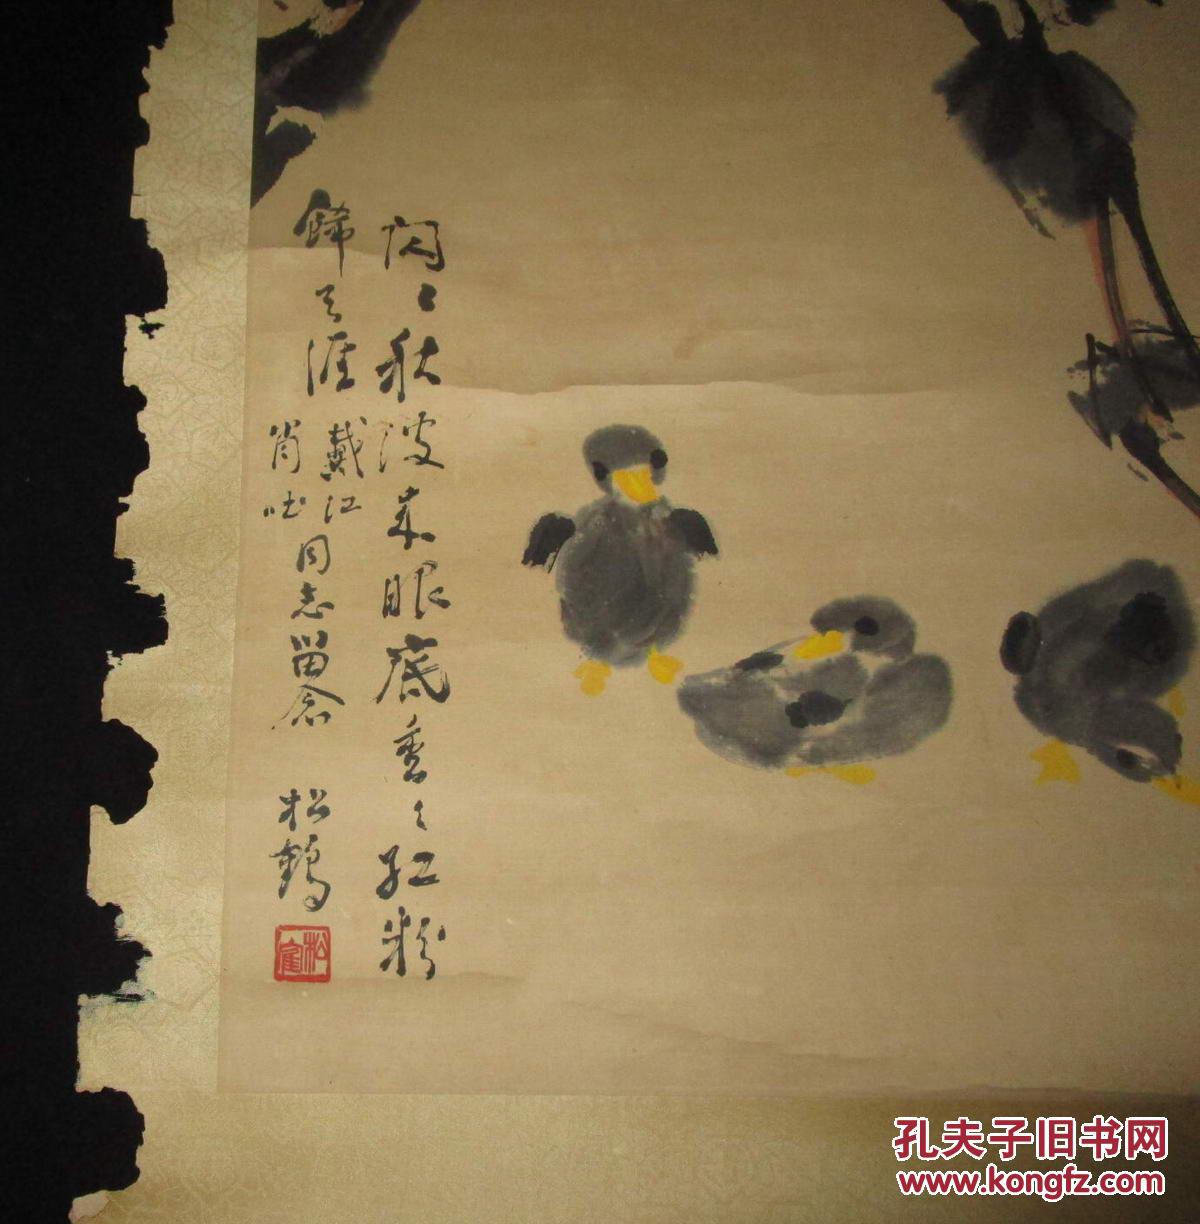 闪〻秋波来眼底重〻红粉
饰天涯
戴江
肖吐同志留念
松鹤
松隺
孔夫子旧书网
www.kongfz.com